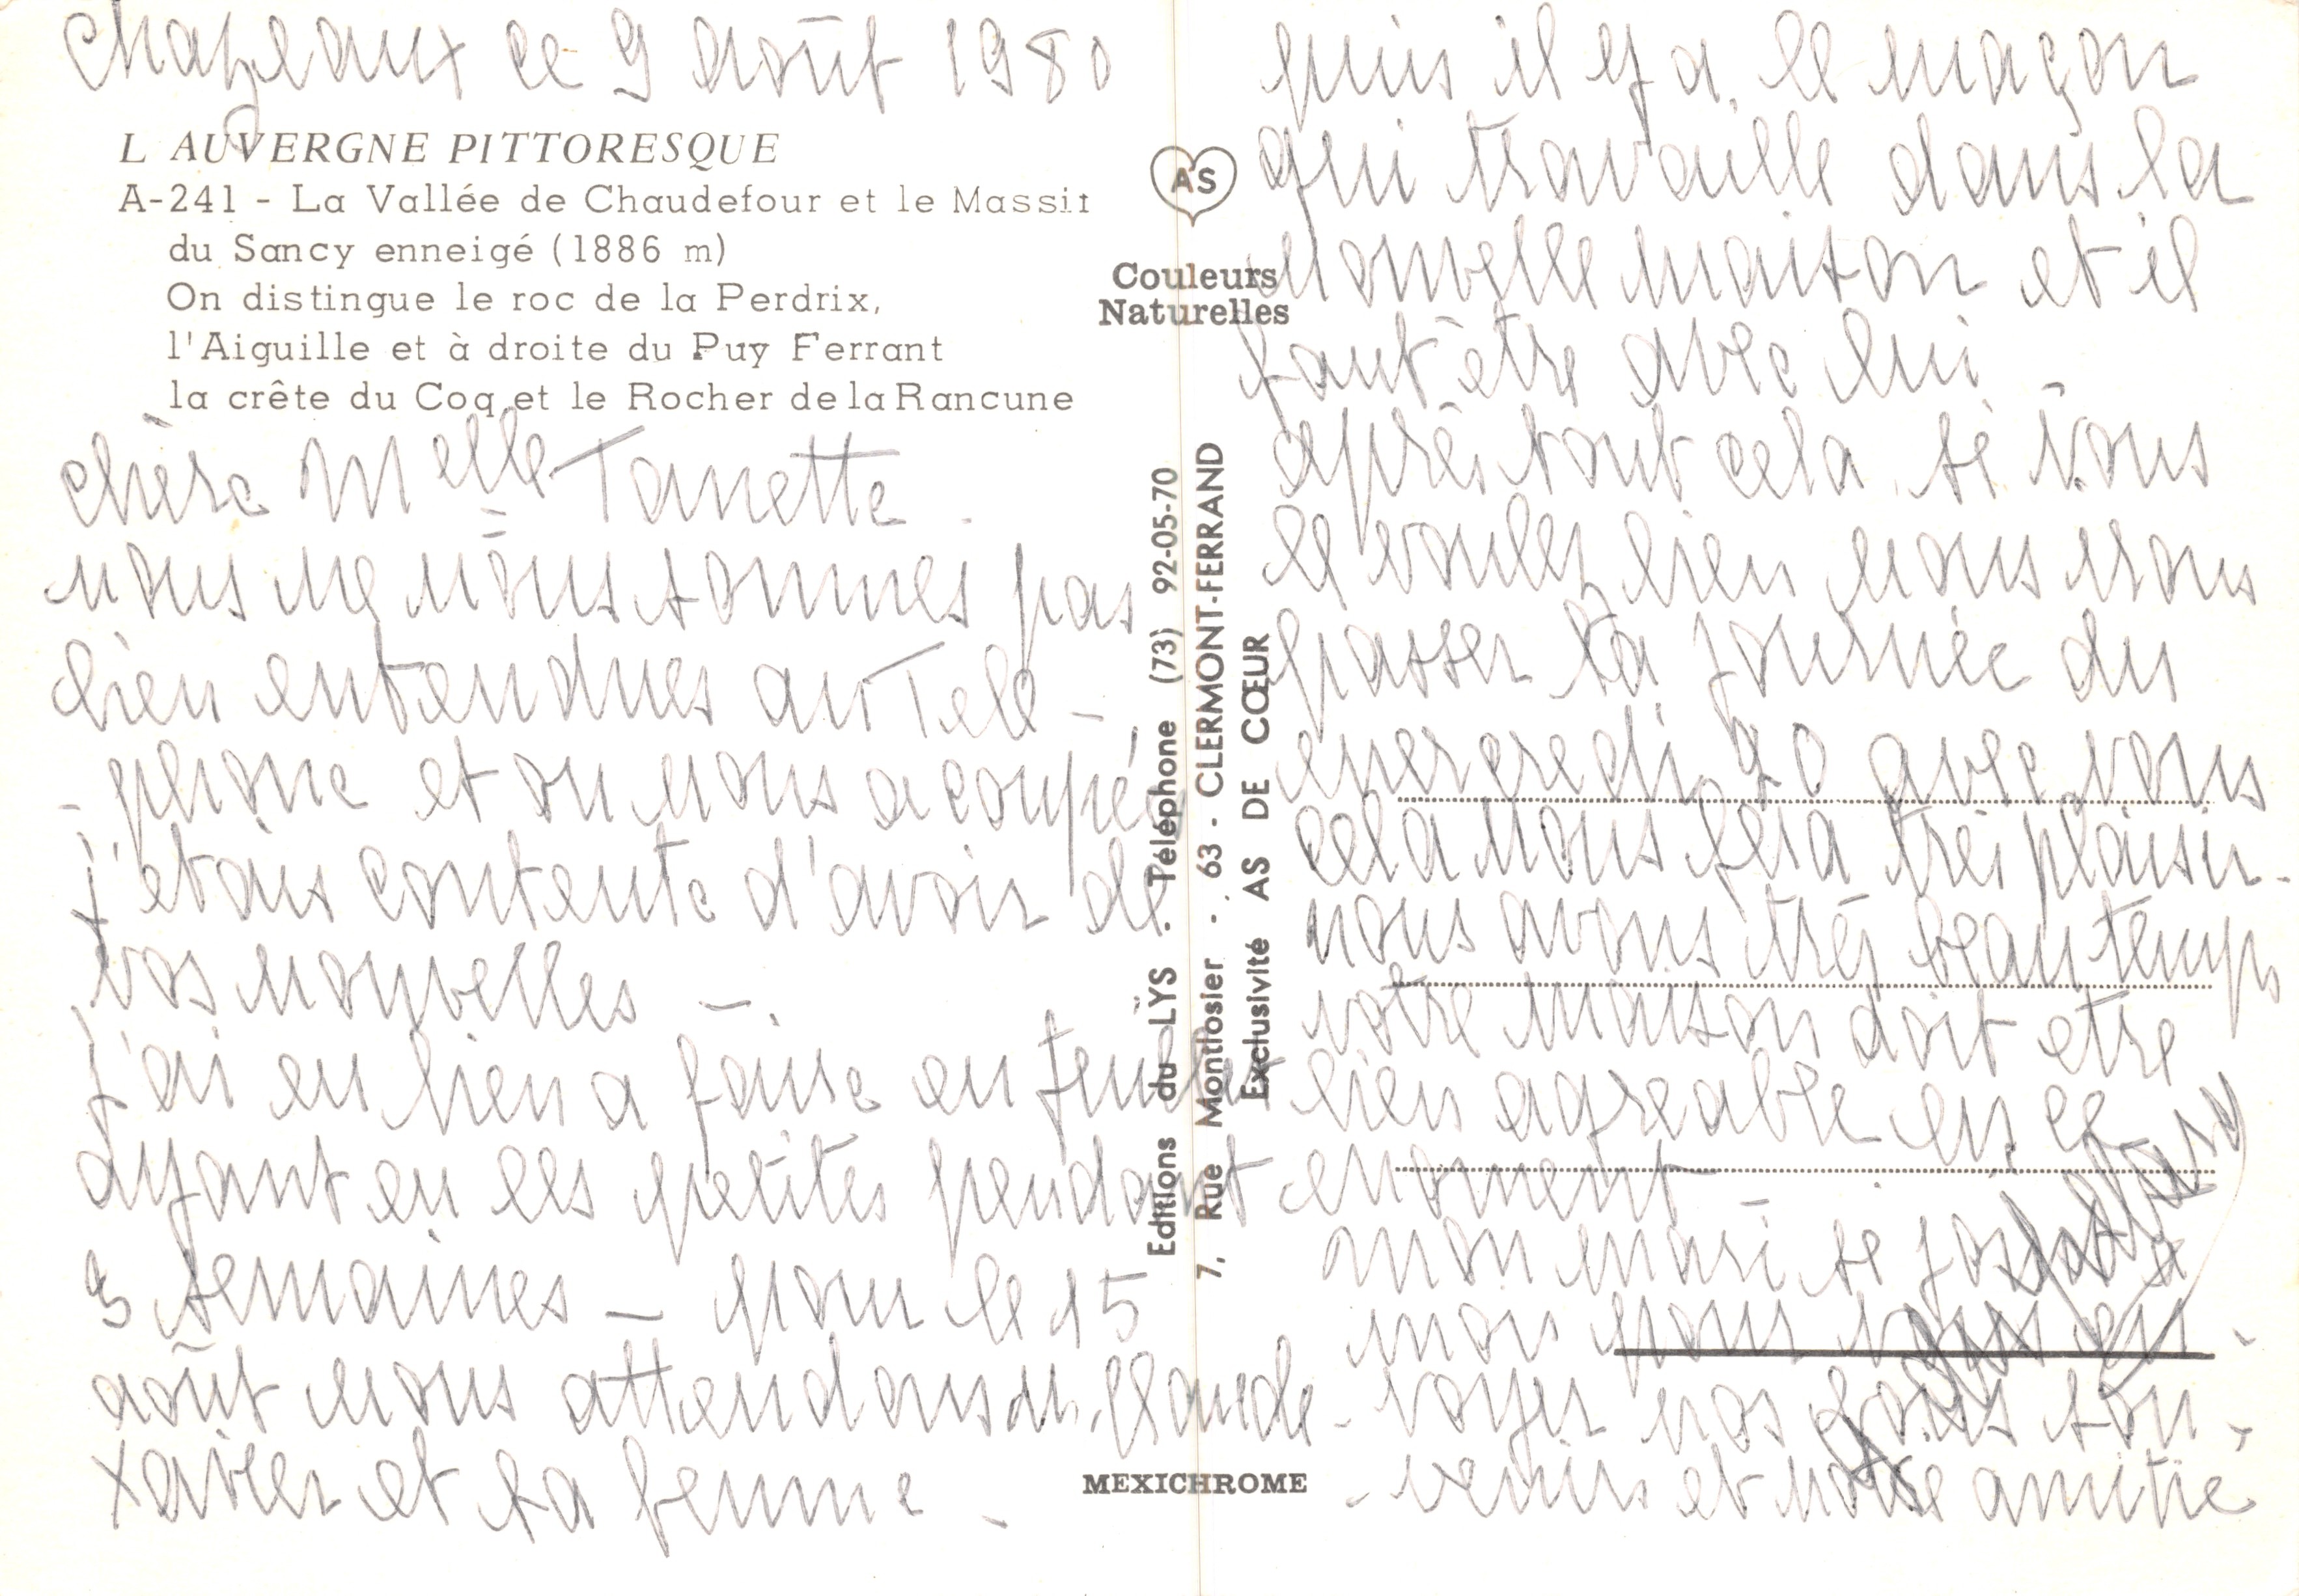 Chazeaux ce 9 août 1980
L AUVERGNE PITTORESQUE
A-241 - La Vallée de Chaudefour et le Massif
du Sancy enneigé (1886 m)
On distingue le roc de la Perdrix,
l'Aiguille et à droite du Puy Ferrant
la crête du Coq et le Rocher de la Rancune
chère Melle Tanette
nous ne nous sommes pas
bien entendues au Tele-
-phone et on nous a coupées
j'etais contente d'avoir de
vos nouvelles -
j'ai eu bien a faire en juillet
ayant eu les petites pendant
3 semaines - pour le 15
août nous attendons M. Claude
Xavier et sa femme -
AS
Couleurs
Naturelles
Editions du LYS - Téléphone (73) 92-05-70
7, Rue Montlosier - 63 - CLERMONT-FERRAND
Exclusivité AS DE CŒUR
MEXICHROME
puis il y a le maçon
qui travaille dans la
nouvelle maison et il
faut être avec lui -
après tout cela si vous
le voulez bien nous irons
passer la journée du
mercredi 20 avec vous
cela nous fera très plaisir -
nous avons très beau temps
votre maison doit etre
bien agreable en ce
moment -
mon mari se joint a
moi pour vous en-
-voyer nos bons sou-
-venirs et notre amitié